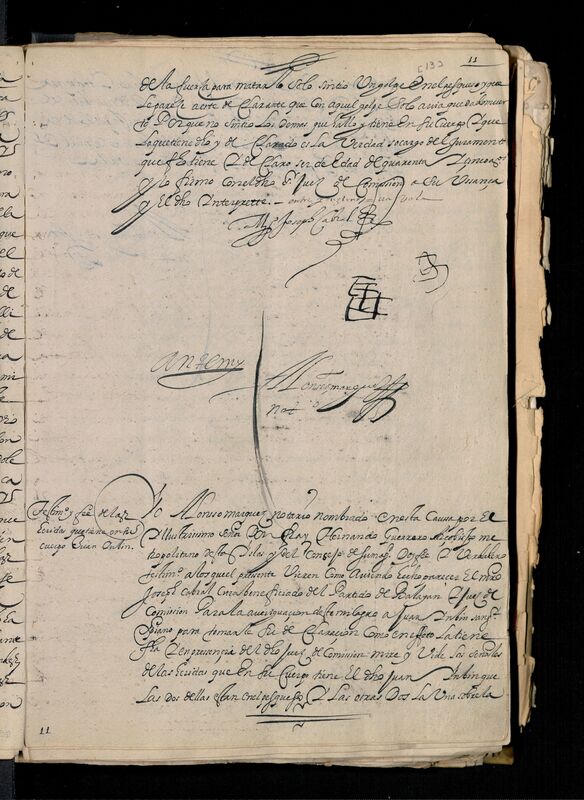 11
[13]
de la fuerça para matarlo solo sintio Un golpe en el pescueço y que
le pareze a este de clarante que con aquel golpe solo avia quedado muer
to Porque no sintio los demas que hallo y tiene En su Cuerpo Y que
lo que tiene dho y de clarado es la Verdad so cargo del Juramento
que fho tiene Y de claro ser de Edad de quarenta Y años
y lo firmo con el dho S.r Juez de Comission a su Usança
y El dho Interprete
M.o Joseph Cabral
Ante my
Alonso marquez
not.o
Testim.o y fee de las he
ridas que tiene en su
cuerpo Juan Inbin
Yo Alonso marquez notario nombrado en esta Causa por El
Illustrissimo Señor Don fray Hernando Guerrero Arcobispo me
tropolitano destas Islas y del Consejo de su mag.d Doy fee Y Verdadero
testim.o a los que el presente Vieren Como aviendo hecho parecer El m.o
Joseph Cabral Cura beneficiado del Partido de Balayan Y Juez de
Comission Para la averiguacion deste milagro a Juan Inbin sangley
Xpiano para tomarle su de claracion Como en efeto la tiene
fha En presencia del dho Juez de Comission mire y Vide las señales
de las heridas que en su Cuerpo tiene El dho Juan Inbin que
las dos dellas estan en el pescueço Y las otras Dos la Una sobre la
11